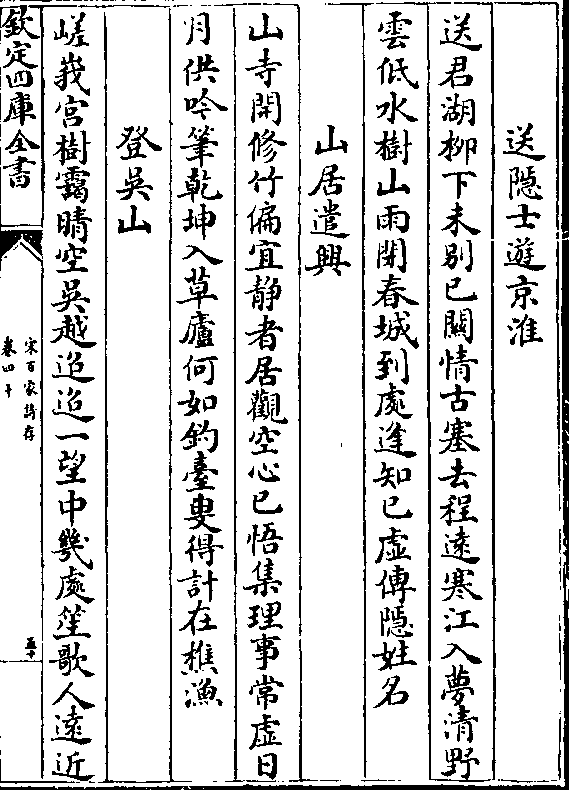 送隱士遊京淮
送君湖柳下未别已關情古塞去程遠寒江入夢清野
雲低水樹山雨閉春城到處逢知已虚傳隱姓名
山居遣興
山寺開修竹偏宜静者居觀空心已悟集理事常虚日
月供吟筆乾坤入草廬何如釣臺叟得計在樵漁
登吳山
嵯峩宫樹靄晴空吳越迢迢一望中幾處笙歌人遠近
欽定四庫全書
宋百家詩存
卷四十